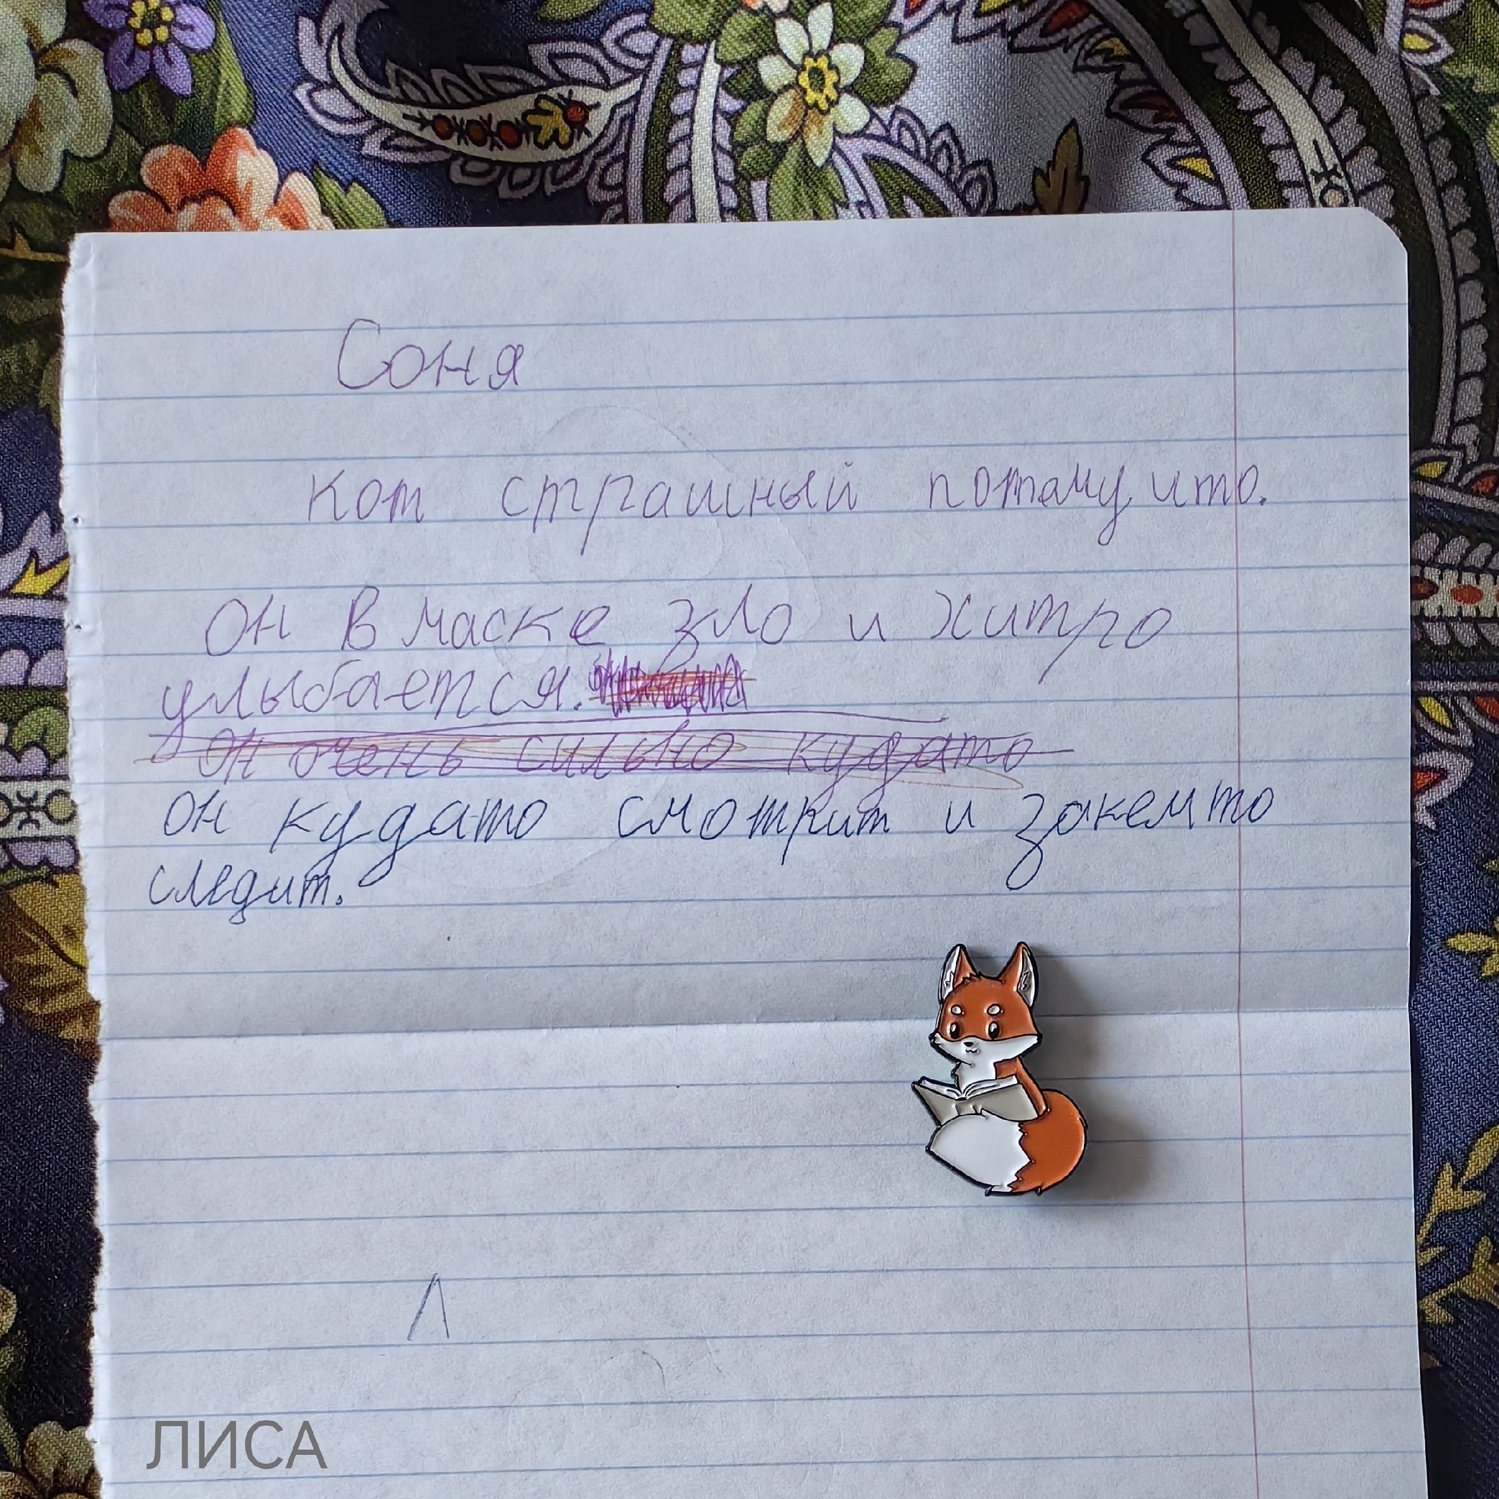 Соня
кот страшный потаму што.
Он в маске зло и хитро
улыбается.
Он очень сильно кудато
Он кудато смотрит и закемто
следит.
Л
ЛИСА